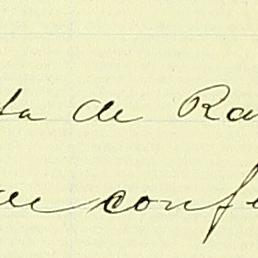 ta de Ra
ue conf